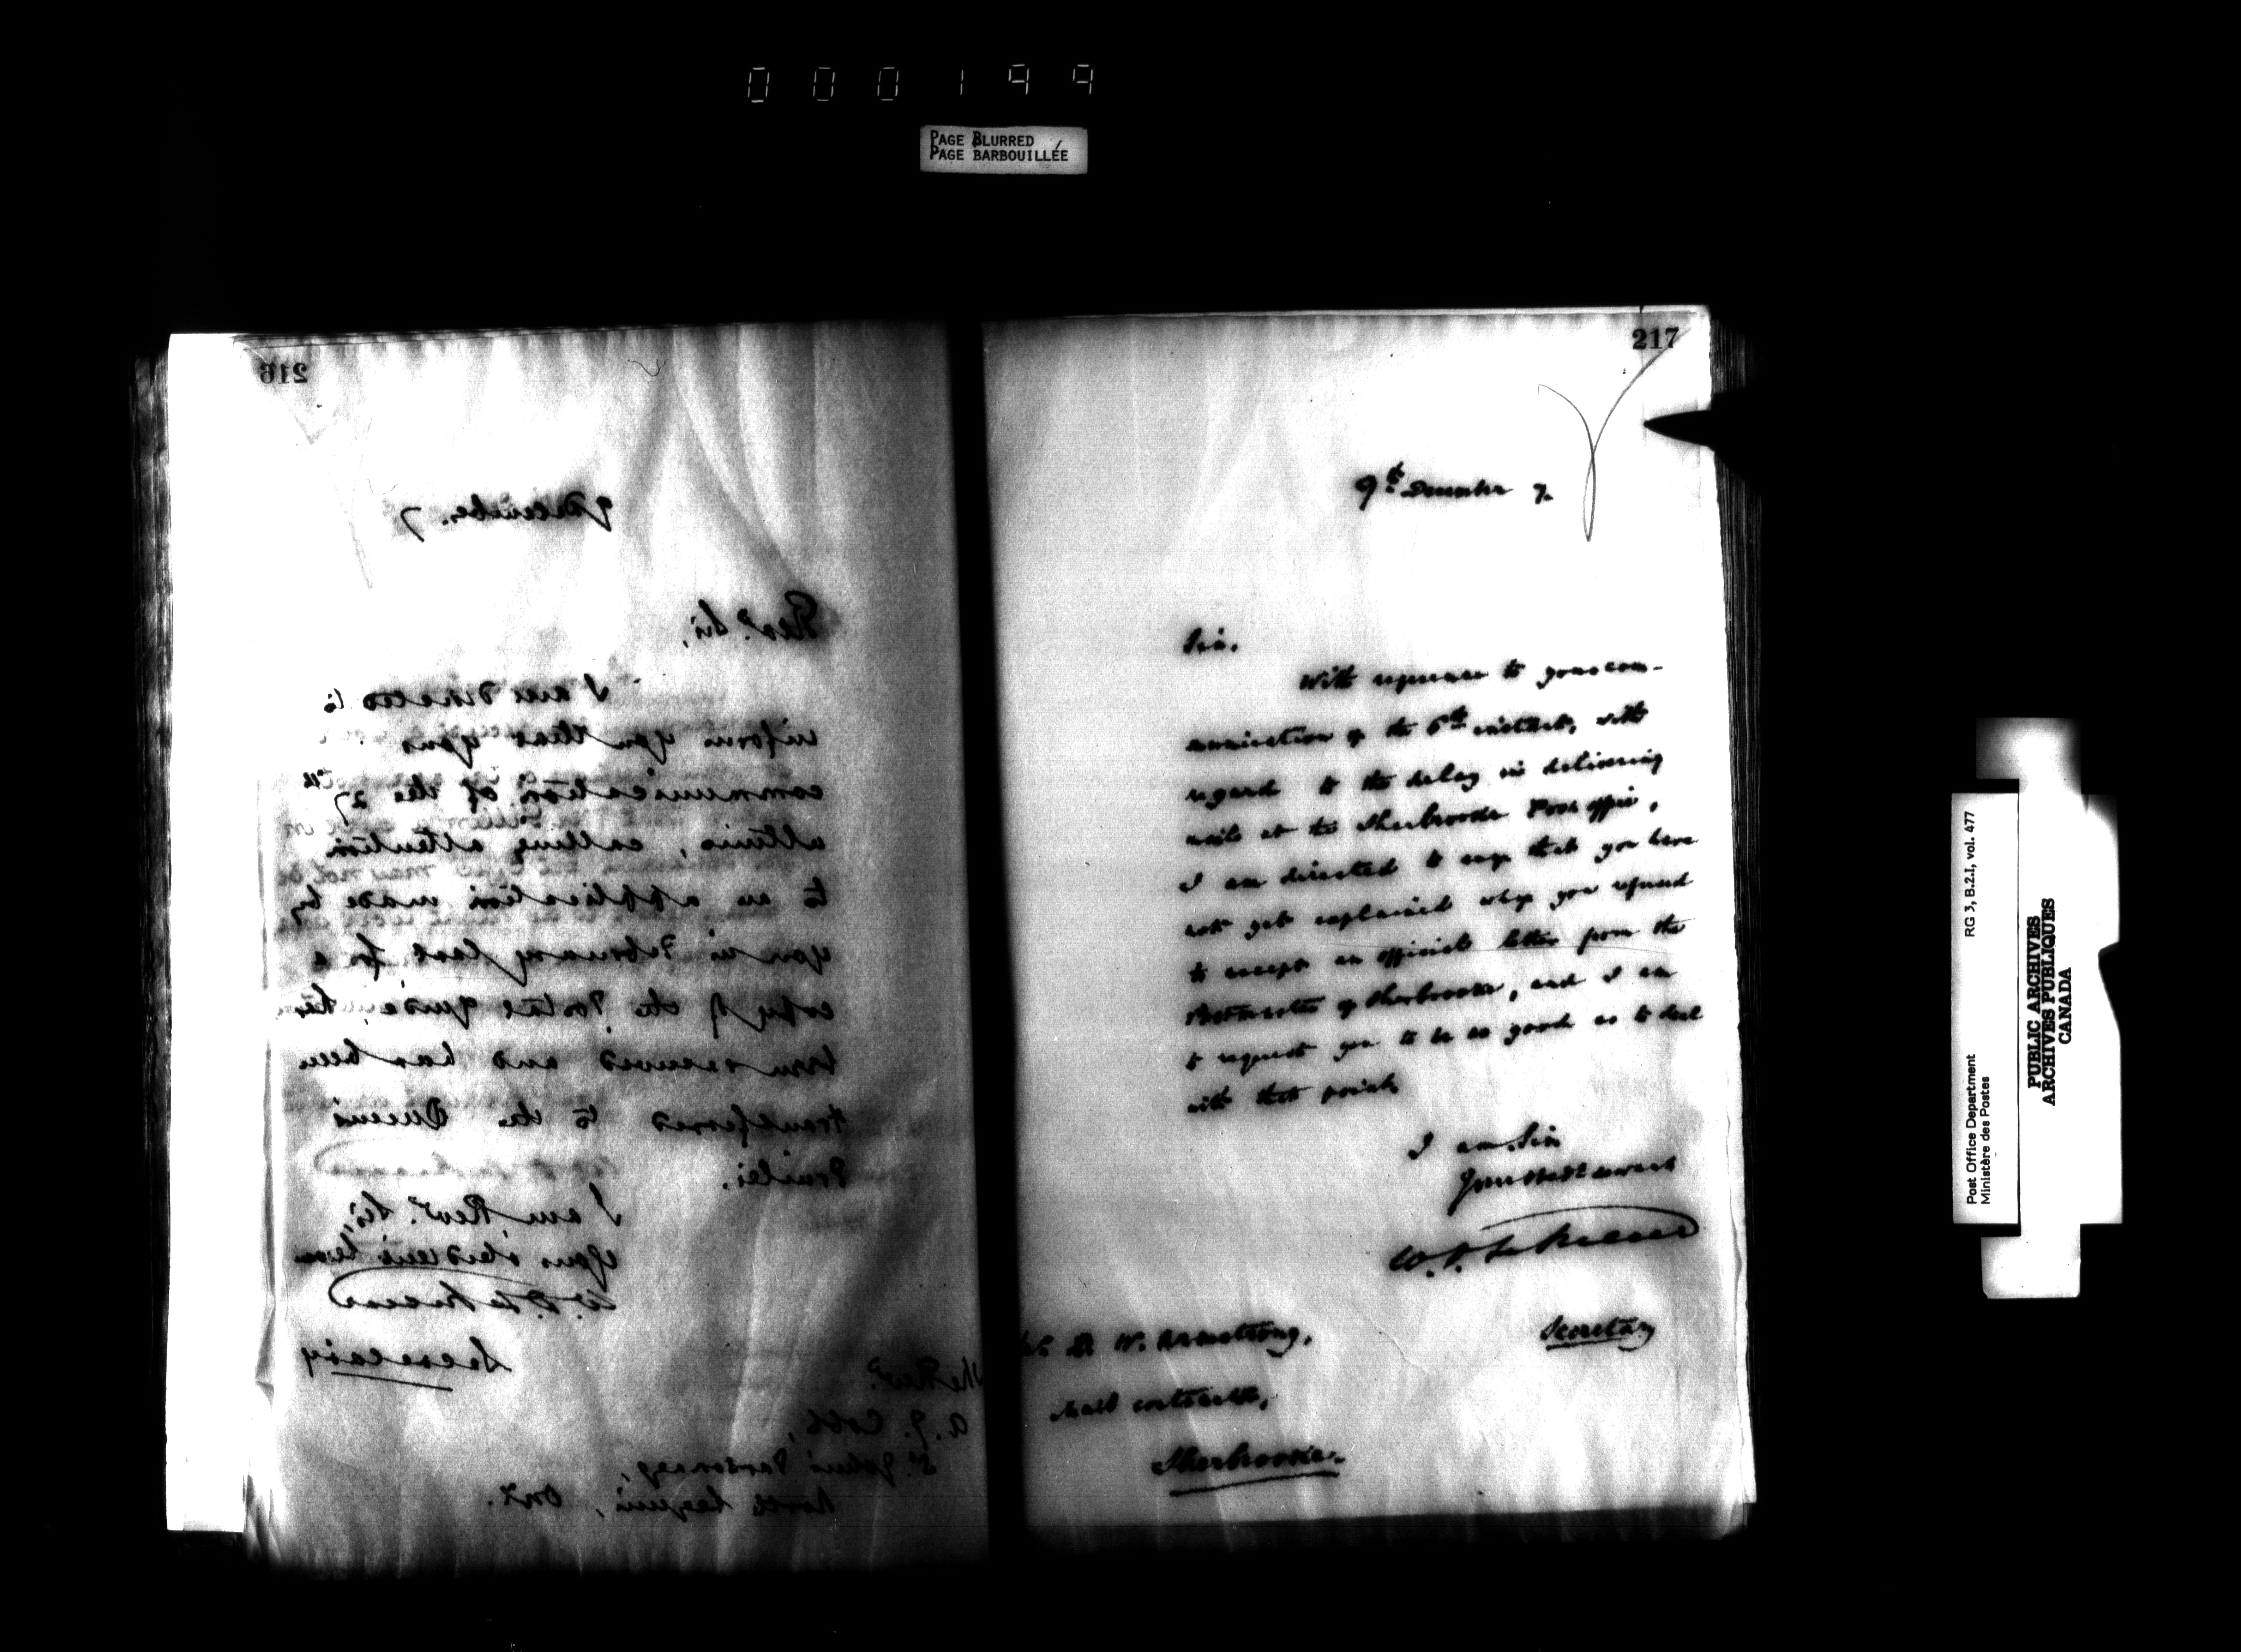 000199
PAGE BLURRED
PAGE BARBOUILLÉE
216
9 December. 7
Revd. Sir,
I am directed to
inform you that your
communication of the 27th
ultimo, calling attention
to an application made by
you in February last for a
copy of the Postal Guide, has
been received and has been
transferred to the Queen's
Printer.
I am, Revd. Sir,
Your obedient
W. D. LeSueur
Secretary
The Revd.
A. J. Cobb,
St. John's Parsonage,
Ont.
217
9th December 7.
Sir.
With reference to your com-
munication of the 6th instant, with
regard to the delay in delivering
mails at the Sherbrooke Post office,
I am directed to say that you have
not yet explained why you refused
to accept an official letter from the
Postmaster of Sherbrooke, and I am
to request you to be so good as to deal
with that point.
I am, Sir
Your obedt. servant
W. D. LeSueur
Secretary
Mr. D. W. Armstrong,
Mail contractor,
Sherbrooke.
Post Office Department
Ministère des Postes
RG 3, B.2.I, vol. 477
PUBLIC ARCHIVES
ARCHIVES PUBLIQUES
CANADA